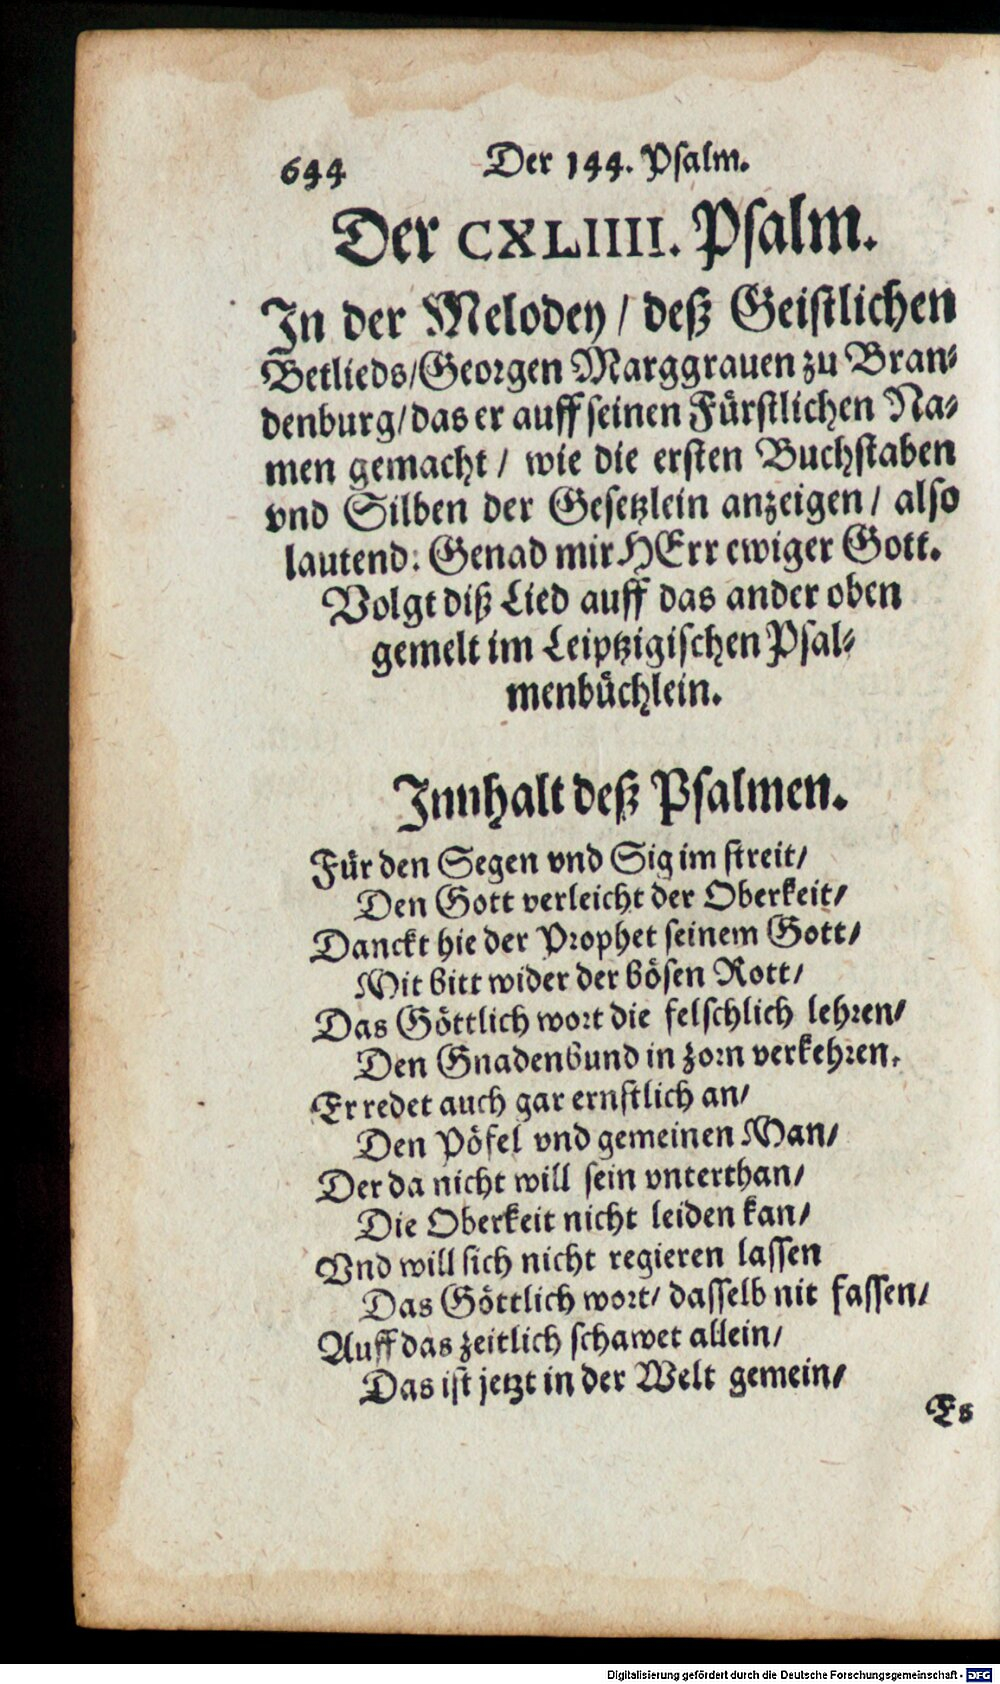 644
Der 144. Psalm.
Der CXLIIII. Psalm.
In der Melodey / deß Geistlichen
Betlieds/Georgen Marggrauen zu Bran-
denburg/das er auff seinen Fürstlichen Na-
men gemacht / wie die ersten Buchstaben
vnd Silben der Gesetzlein anzeigen / also
lautend: Genad mir HErr ewiger Gott.
Volgt diß Lied auff das ander oben
gemelt im Leiptzigischen Psal-
menbüchlein.
Innhalt deß Psalmen.
Für den Segen vnd Sig im streit/
Den Gott verleicht der Oberkeit/
Danckt hie der Prophet seinem Gott/
Mit bitt wider der bösen Rott/
Das Göttlich wort die felschlich lehren/
Den Gnadenbund in zorn verkehren.
Er redet auch gar ernstlich an/
Den Pöfel vnd gemeinen Man/
Der da nicht will sein vnterthan/
Die Oberkeit nicht leiden kan/
Vnd will sich nicht regieren lassen
Das Göttlich wort/ dasselb nit fassen/
Auff das zeitlich schawet allein/
Das ist jetzt in der Welt gemein/
Es
Digitalisierung gefördert durch die Deutsche Forschungsgemeinschaft - DFG